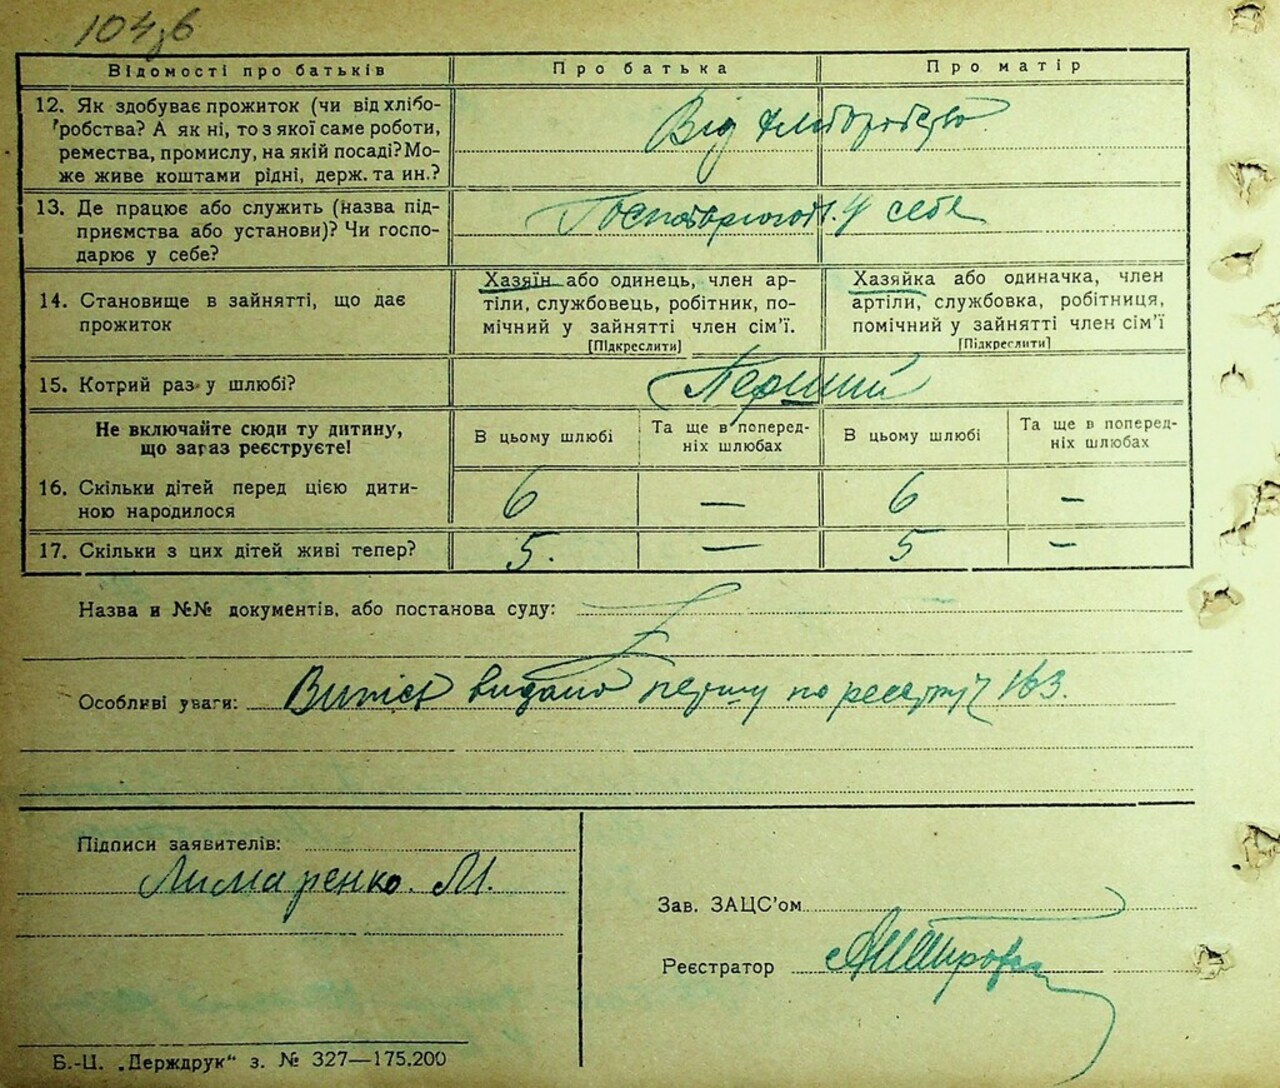 104зв
Відомості про батьків Про батька Про матір
12. Як здобуває прожиток (чи від хлібо-
робства? А як ні, то з якої саме роботи,
ремества, промислу, на якій посаді? Мо-
же живе коштами рідні, держ. та ин.?
Від хліборобство
13. Де працює або служить (назва під-
приємства або установи)? Чи госпо-
дарює у себе?
у себе
14. Становище в зайнятті, що дає
прожиток
Хазяїн або одинець, член ар-
тіли, службовець, робітник, по-
мічний у зайнятті член сім'ї.
[Підкреслити]
Хазяйка або одиначка, член
артіли, службовка, робітниця,
помічний у зайнятті член сім'ї
[Підкреслити]
15. Котрий раз у шлюбі?
Перший
Не включайте сюди ту дитину,
що зараз реєструєте!
В цьому шлюбі
Та ще в поперед-
ніх шлюбах
В цьому шлюбі
Та ще в поперед-
ніх шлюбах
16. Скільки дітей перед цією дити-
ною народилося
6 — 6 —
17. Скільки з цих дітей живі тепер? 5. — 5 —
Назва и №№ документів, або постанова суду:
Особливі уваги: Витяг видано першу по реєстру 163.
Підписи заявителів:
Лимаренко. М.
Зав. ЗАЦС'ом
Реєстратор
Б.-Ц. „Держдрук“ з. № 327—175.200